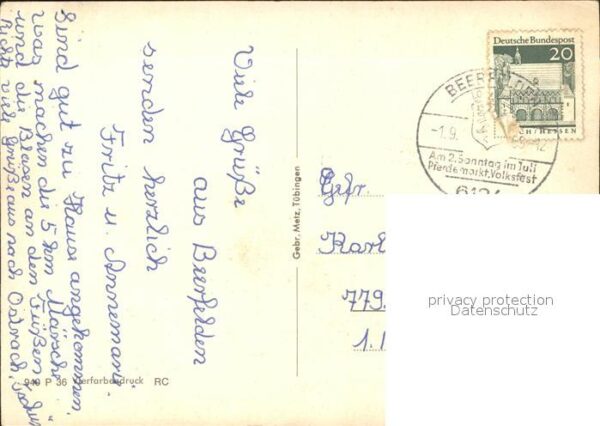 Viele Grüße
aus Beerfelden
senden herzlich
Fritz u. Annemarie
Sind gut zu Hause angekommen,
was machen die 5 km Märsche
und die Blasen an den Füßen
viele Grüße aus nach Ostrach
Gebr. Metz, Tübingen
949 P 36 Vierfarbendruck RC
Deutsche Bundespost
20
LORSCH/HESSEN
BEERFELDEN
-1.9.
-12
Am 2. Sonntag im Juli
Pferdemarkt, Volksfest
6124
Gebr.
Karl
779
1.1
privacy protection
Datenschutz